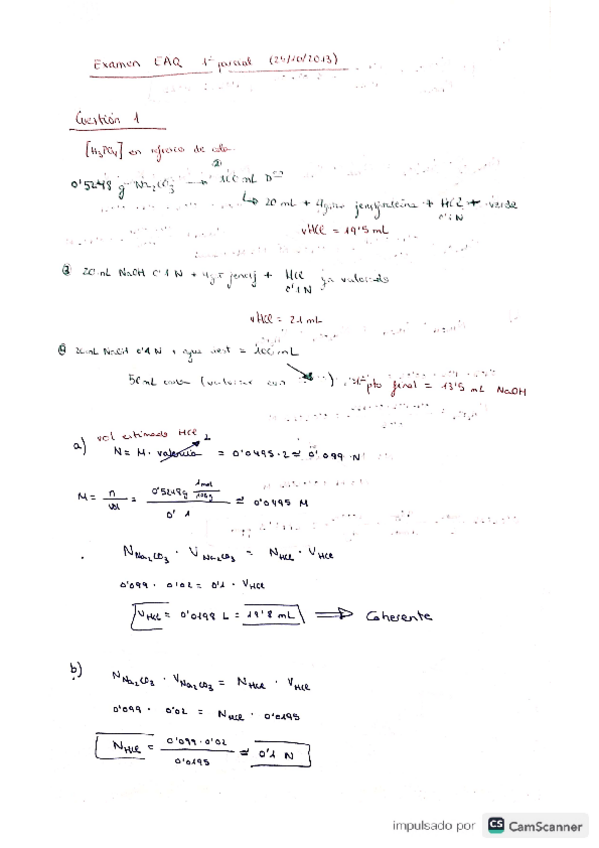 Examen EAQ 1er parcial (24/10/2013)
Cuestión 1
[H3PO4] en refresco de cola
0'5248 g Na2CO3 → 100 mL
↳ 20 mL + 4 gotas + HCl → verde
0'1 N
VHCl = 19'5 mL
20 mL NaOH 0'1 N + 4 gotas + HCl ya valorado
0'1 N
VHCl = 21 mL
20 mL NaOH 0'1 N + agua = 100 mL
50 mL cola (valorar con ) pto final = 13'5 mL NaOH
a) vol estimado HCl
N = M · valencia = 0'0495 · 2 ≃ 0'099 N
2
M = n/vol = 0'5248g 1mol/106g / 0'1 ≃ 0'0495 M
NNa2CO3 · VNa2CO3 = NHCl · VHCl
0'099 · 0'02 = 0'1 · VHCl
VHCl = 0'0198 L = 19'8 mL ⟹ Coherente
b) NNa2CO3 · VNa2CO3 = NHCl · VHCl
0'099 · 0'02 = NHCl · 0'0195
NHCl = 0'099·0'02 / 0'0195 ≃ 0'1 N
impulsado por CS CamScanner